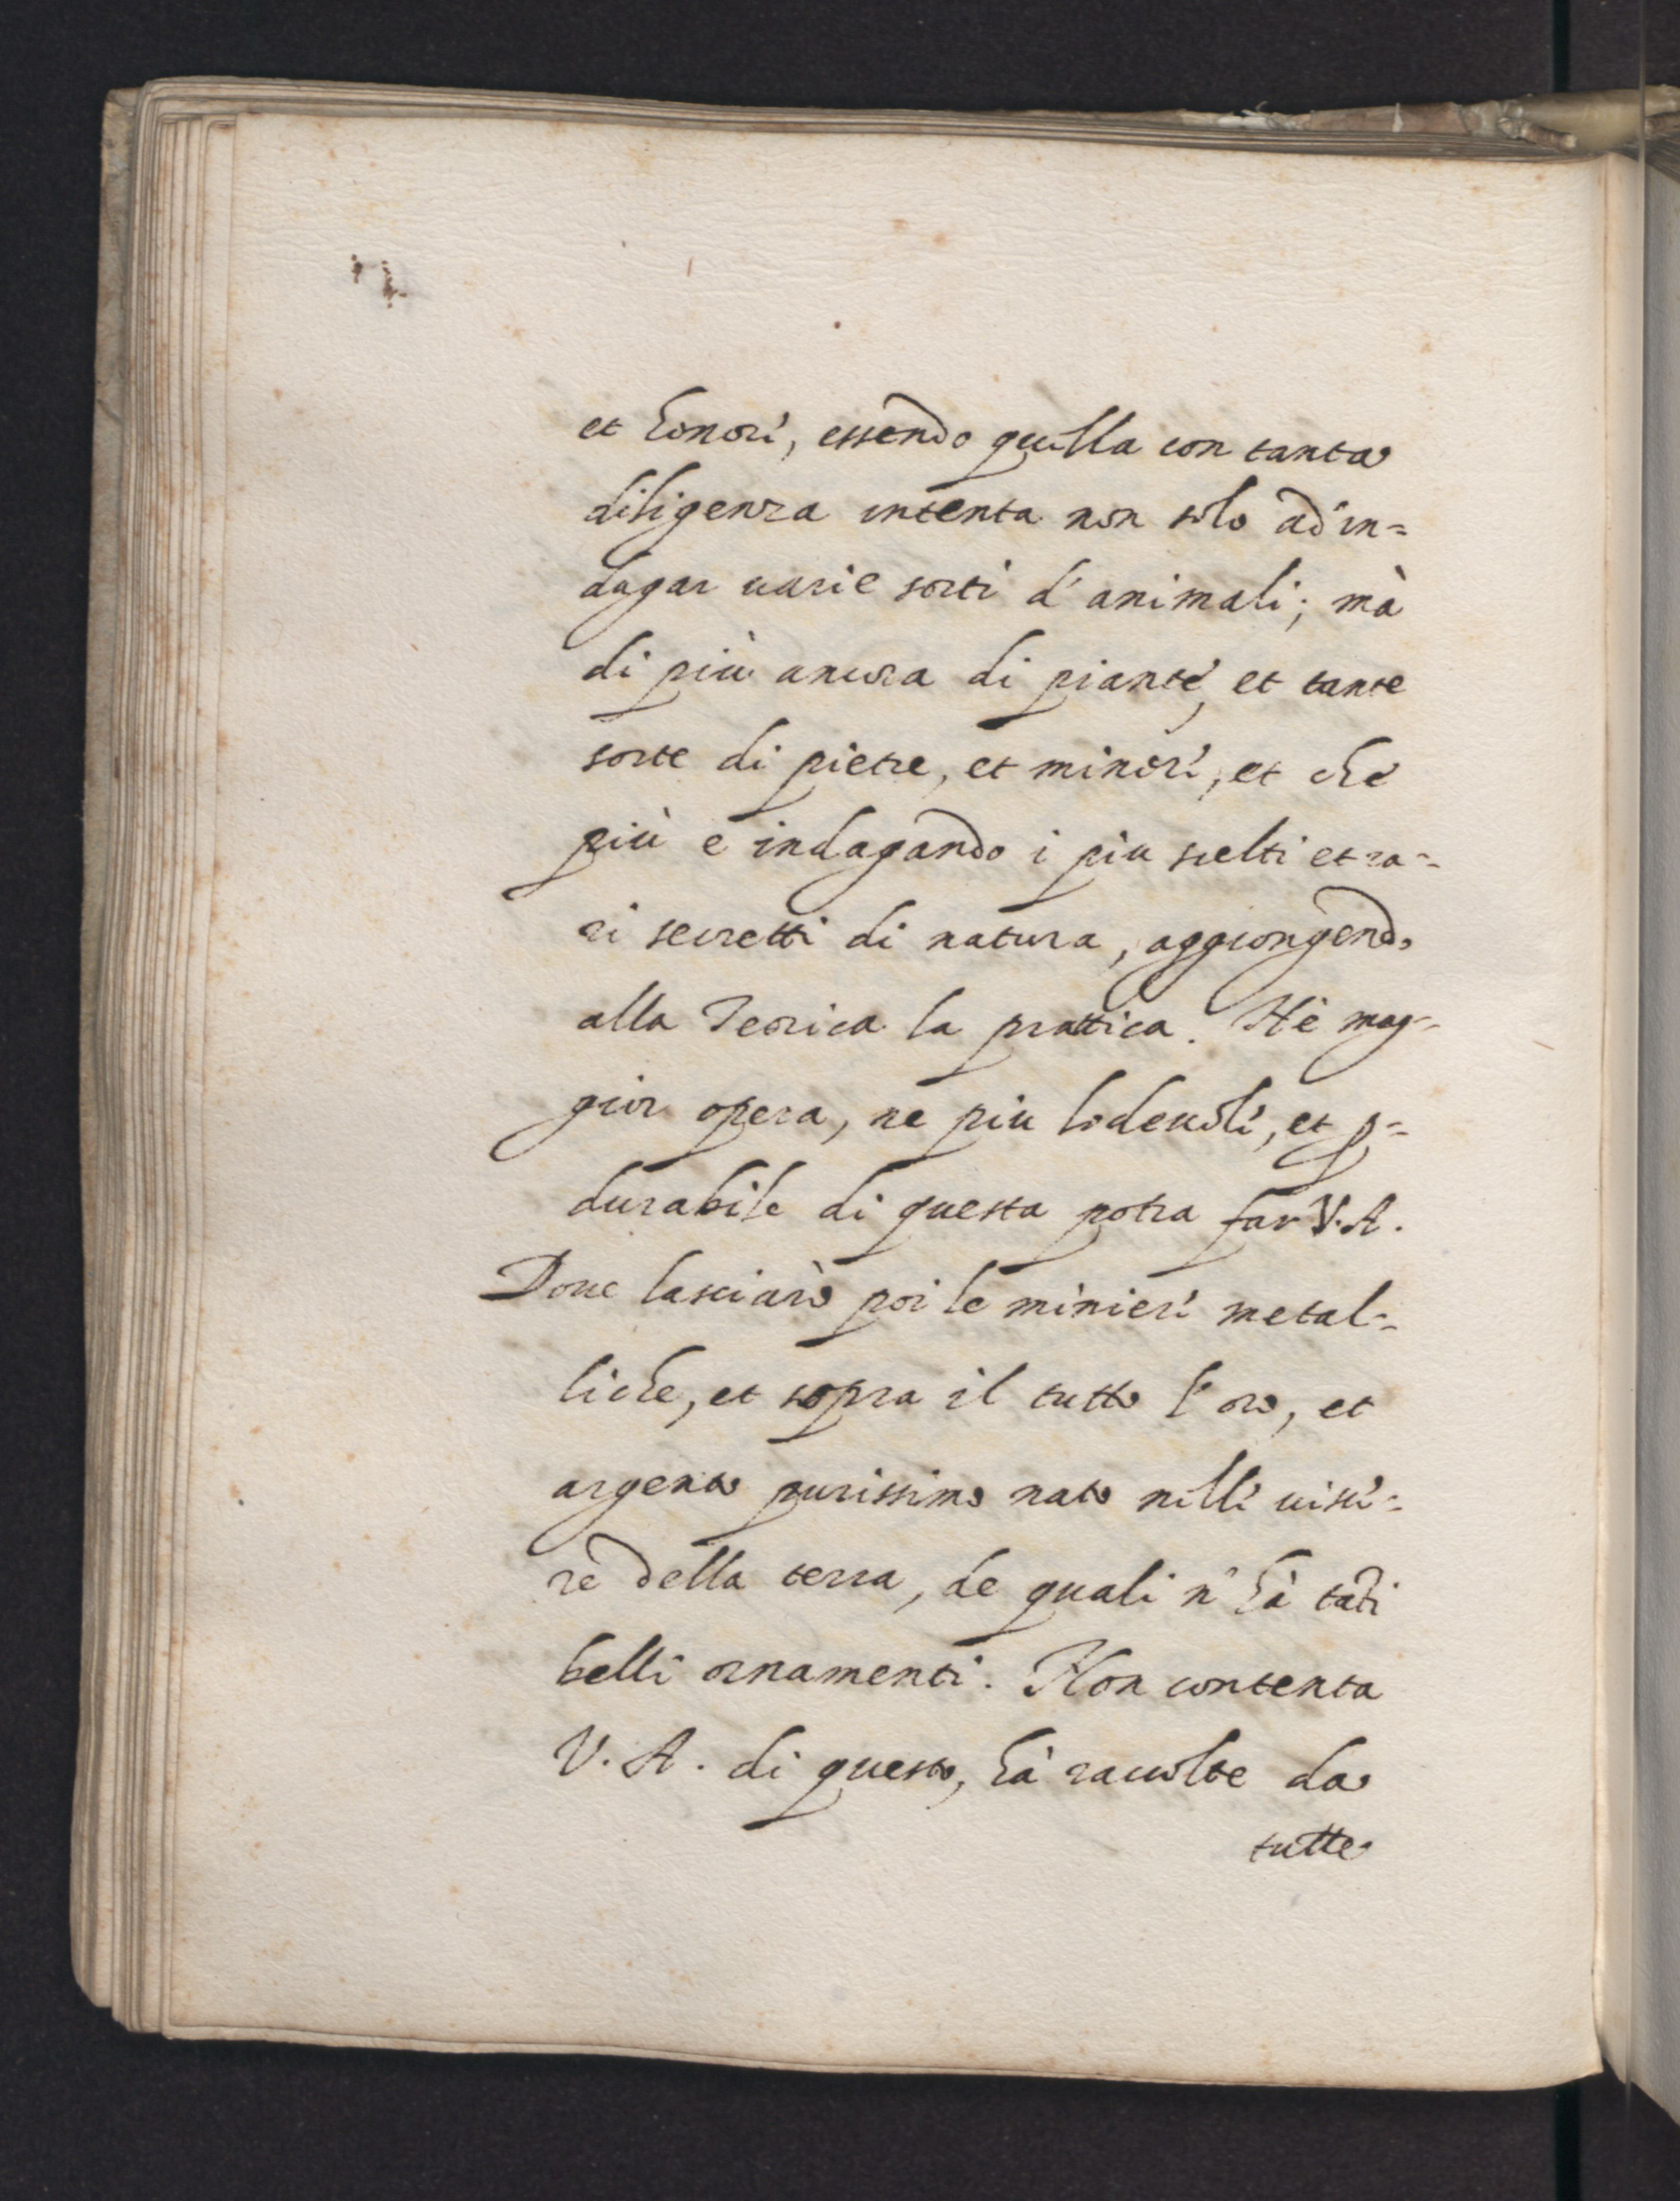 et honori, essendo quella con tanta
diligenza intenta non solo ad in=
dagar uarie sorti d' animali; mà
di più ancora di piante, et tante
sorte di pietre, et mineri, et che
più è indagando i piu scelti et ra=
ri secretti di natura, aggiongendo
alla Teorica la prattica. Nè mag=
gior opera, ne piu lodeuoli, et p=
durabile di questa potra far V. A.
Doue lasciarò poi le minieri metal=
liche, et sopra il tutto l' oro, et
argento purissimo nato nelli uisce=
re della terra, de quali n' hà tāti
belli ornamenti. Non contenta
V. A. di questo, hà raccolte da
tutte